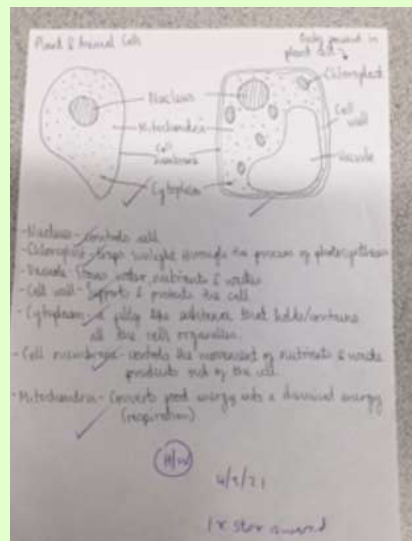 Plant & Animal Cells
Only present in
plant cells
Chloroplast
Nucleus
Cell
wall
Mitochondria
Cell
membrane
Vacuole
Cytoplasm
- Nucleus - controls cell
- Chloroplast - traps sunlight through the process of photosynthesis
- Vacuole - Stores water, nutrients & wastes
- Cell wall - Supports & protects the cell
- Cytoplasm - a jelly like substance that holds/contains
all the cells organelles.
- Cell membrane - controls the movement of nutrients & waste
products out of the cell.
- Mitochondria - Converts food energy into a chemical energy
(respiration)
H/W
4/5/21
1 x star award